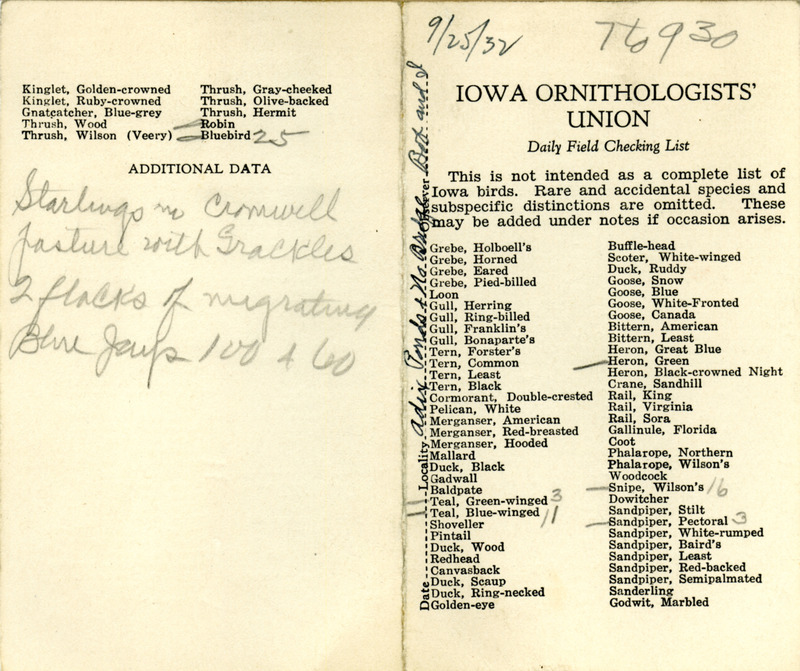 Kinglet, Golden-crowned
Kinglet, Ruby-crowned
Gnatcatcher, Blue-grey
Thrush, Wood
Thrush, Wilson (Veery)
Thrush, Gray-cheeked
Thrush, Olive-backed
Thrush, Hermit
Robin
Bluebird 25
ADDITIONAL DATA
Starlings in Cromwell
pasture with Grackles
2 flocks of migrating
Blue Jays 100 & 60
9/25/32
7 to 930
IOWA ORNITHOLOGISTS'
UNION
Daily Field Checking List
This is not intended as a complete list of
Iowa birds. Rare and accidental species and
subspecific distinctions are omitted. These
may be added under notes if occasion arises.
Date Locality Ponds & No. Observer and I
Grebe, Holboell's
Grebe, Horned
Grebe, Eared
Grebe, Pied-billed
Loon
Gull, Herring
Gull, Ring-billed
Gull, Franklin's
Gull, Bonaparte's
Tern, Forster's
Tern, Common
Tern, Least
Tern, Black
Cormorant, Double-crested
Pelican, White
Merganser, American
Merganser, Red-breasted
Merganser, Hooded
Mallard
Duck, Black
Gadwall
Baldpate
Teal, Green-winged 3
Teal, Blue-winged 11
Shoveller
Pintail
Duck, Wood
Redhead
Canvasback
Duck, Scaup
Duck, Ring-necked
Golden-eye
Buffle-head
Scoter, White-winged
Duck, Ruddy
Goose, Snow
Goose, Blue
Goose, White-Fronted
Goose, Canada
Bittern, American
Bittern, Least
Heron, Great Blue
Heron, Green
Heron, Black-crowned Night
Crane, Sandhill
Rail, King
Rail, Virginia
Rail, Sora
Gallinule, Florida
Coot
Phalarope, Northern
Phalarope, Wilson's
Woodcock
Snipe, Wilson's 16
Dowitcher
Sandpiper, Stilt
Sandpiper, Pectoral 3
Sandpiper, White-rumped
Sandpiper, Baird's
Sandpiper, Least
Sandpiper, Red-backed
Sandpiper, Semipalmated
Sanderling
Godwit, Marbled